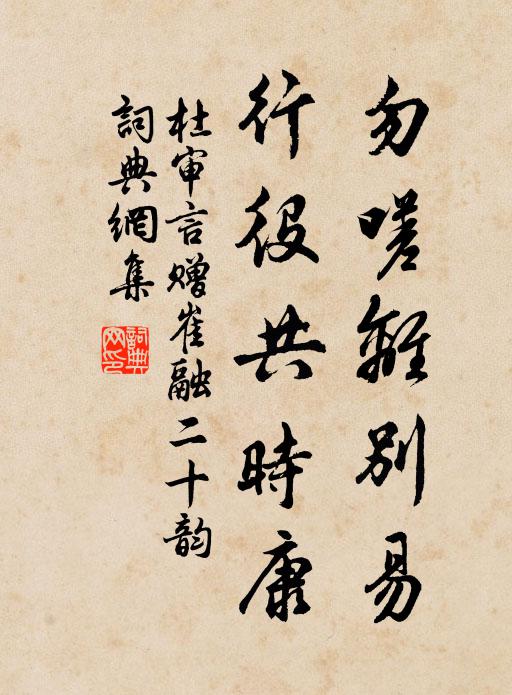 勿嗟離別易
行役共時康
杜审言赠崔融二十韵
詞典網集
詞典网印